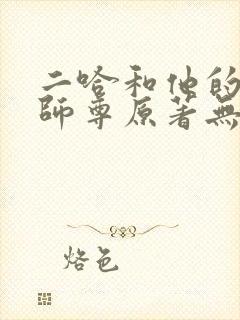 二哈和他的
師尊原著無
烙色